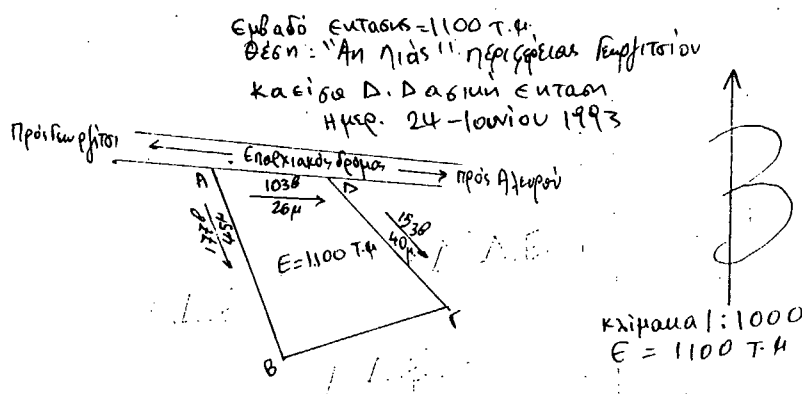 Εμβαδό εκτασης=1100 τ.μ.
Θέση: "Αη Λιάς" περιφέρειας Γεωργιτσίου
Δ. Δασική εκταση
Ημερ. 24-Ιουνίου 1993
Πρός Γεωργίτσι
Επαρχιακός δρόμος
πρός Αλευρού
Α
Δ
103θ
26μ
153θ
40μ.
45μ
Ε=1100 Τ.μ
Γ
Β
Β
κλίμακα 1:1000
Ε = 1100 Τ.μ